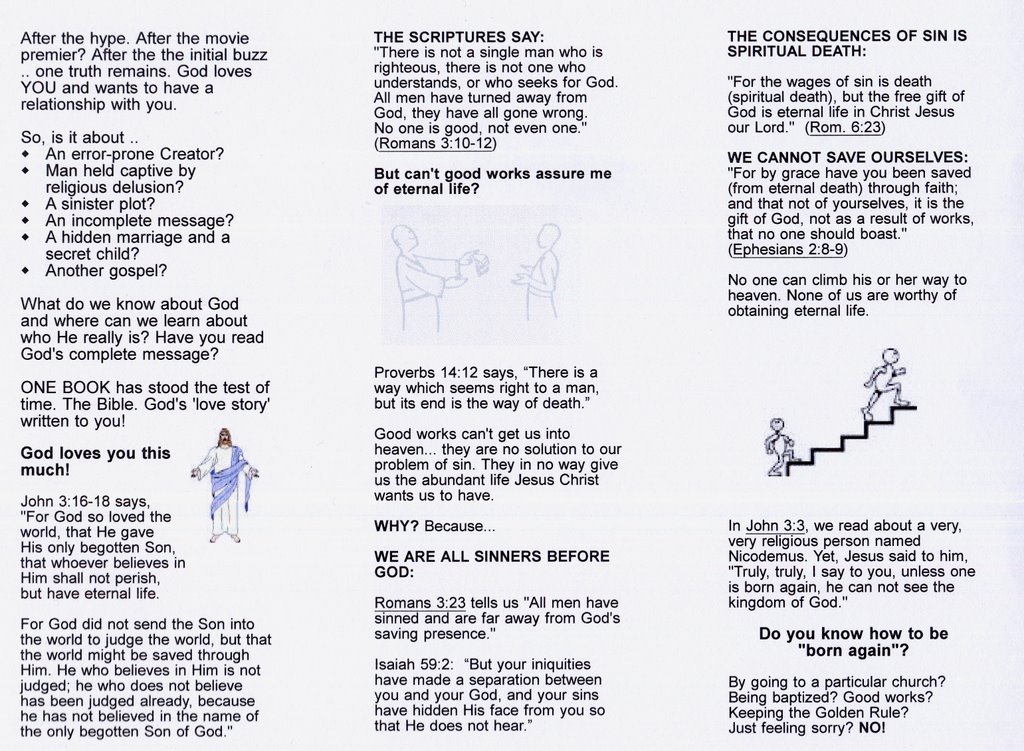 After the hype. After the movie
premier? After the the initial buzz
.. one truth remains. God loves
YOU and wants to have a
relationship with you.
So, is it about ..
An error-prone Creator?
Man held captive by
religious delusion?
A sinister plot?
An incomplete message?
A hidden marriage and a
secret child?
Another gospel?
What do we know about God
and where can we learn about
who He really is? Have you read
God's complete message?
ONE BOOK has stood the test of
time. The Bible. God's 'love story'
written to you!
God loves you this
much!
John 3:16-18 says,
"For God so loved the
world, that He gave
His only begotten Son,
that whoever believes in
Him shall not perish,
but have eternal life.
For God did not send the Son into
the world to judge the world, but that
the world might be saved through
Him. He who believes in Him is not
judged; he who does not believe
has been judged already, because
he has not believed in the name of
the only begotten Son of God."
THE SCRIPTURES SAY:
"There is not a single man who is
righteous, there is not one who
understands, or who seeks for God.
All men have turned away from
God, they have all gone wrong.
No one is good, not even one."
(Romans 3:10-12)
But can't good works assure me
of eternal life?
Proverbs 14:12 says, “There is a
way which seems right to a man,
but its end is the way of death.”
Good works can't get us into
heaven... they are no solution to our
problem of sin. They in no way give
us the abundant life Jesus Christ
wants us to have.
WHY? Because...
WE ARE ALL SINNERS BEFORE
GOD:
Romans 3:23 tells us "All men have
sinned and are far away from God's
saving presence."
Isaiah 59:2: “But your iniquities
have made a separation between
you and your God, and your sins
have hidden His face from you so
that He does not hear.”
THE CONSEQUENCES OF SIN IS
SPIRITUAL DEATH:
"For the wages of sin is death
(spiritual death), but the free gift of
God is eternal life in Christ Jesus
our Lord." (Rom. 6:23)
WE CANNOT SAVE OURSELVES:
"For by grace have you been saved
(from eternal death) through faith;
and that not of yourselves, it is the
gift of God, not as a result of works,
that no one should boast."
(Ephesians 2:8-9)
No one can climb his or her way to
heaven. None of us are worthy of
obtaining eternal life.
In John 3:3, we read about a very,
very religious person named
Nicodemus. Yet, Jesus said to him,
"Truly, truly, I say to you, unless one
is born again, he can not see the
kingdom of God."
Do you know how to be
"born again"?
By going to a particular church?
Being baptized? Good works?
Keeping the Golden Rule?
Just feeling sorry? NO!